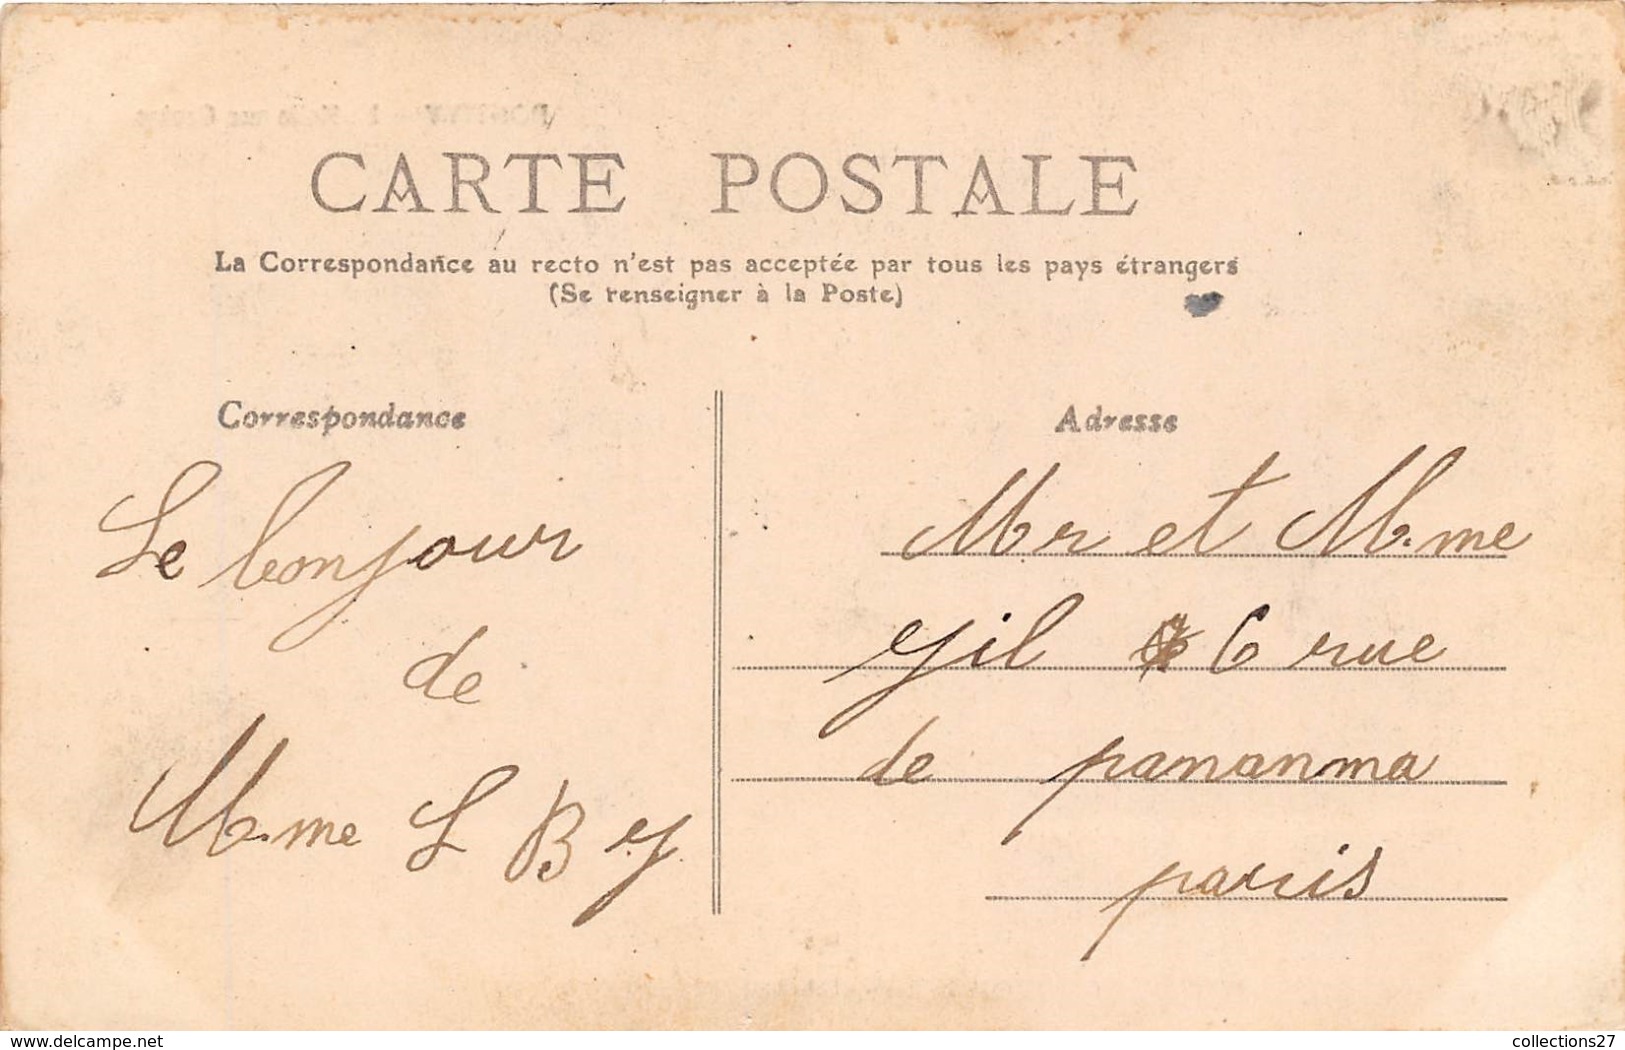 CARTE POSTALE
La Correspondance au recto n'est pas acceptée par tous les pays étrangers
(Se renseigner à la Poste)
Correspondance
Le bonjour
de
Mme L B
Adresse
Mr et Mme
Gil 6 rue
de pananma
paris
delcampe.net
collections27